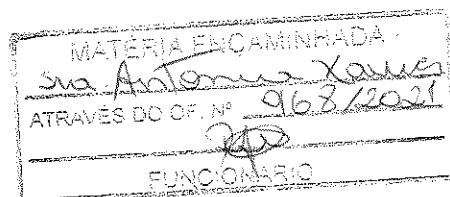 MATÉRIA ENCAMINHADA
sra Antonia Xavier
ATRAVÉS DO OF. Nº 968/2021
FUNCIONÁRIO